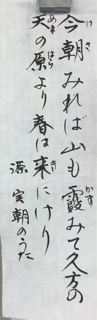 今朝みれば山も霞みて久方の
天の原より春は来にけり
源 実朝のうた
けさ
かす
あま
はら
き